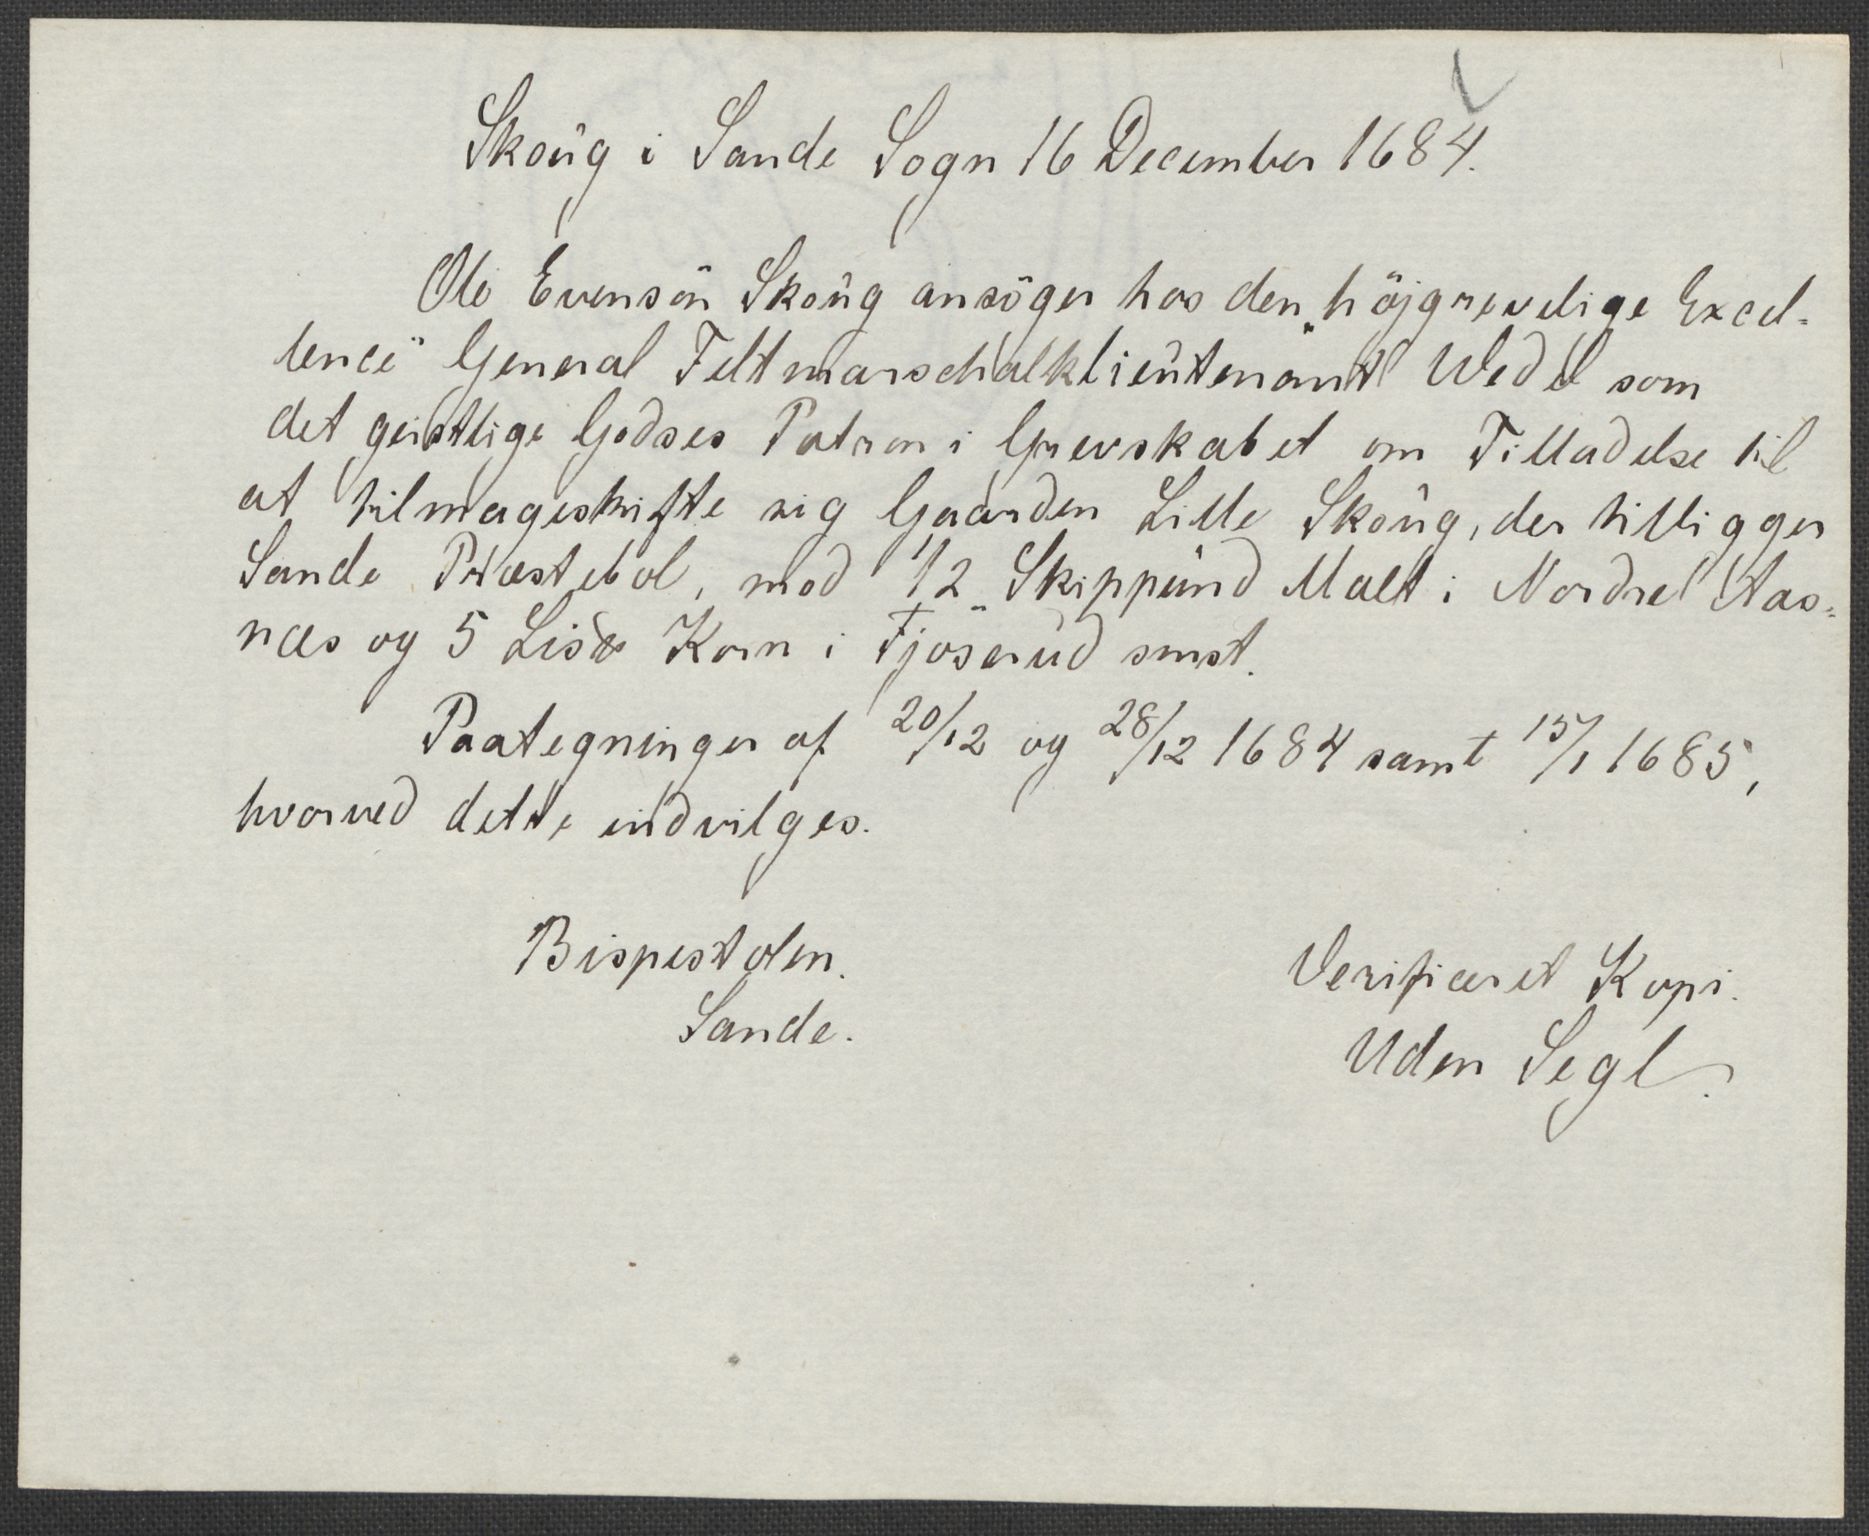 Skoug i Sande Sogn 16 December 1684.
Ole Evensön Skoug ansöger hos den „höjgrevelige Excel-
lence" General Feltmarschalklieutenant Wedel som
det geistlige Godses Patron i Grevskabet om Tilladelse til
at tilmageskifte sig Gaarden Lille Skoug, der tilligger
Sande Præstebol, mod 1/2 Skippund Malt i Nordre Aas-
næs og 5 Lis℔ Korn i Fjøserud smst.
Paategninger af 20/12 og 28/12 1684 samt 15/1 1685,
hvorved dette indvilges.
Bispestolen.
Sande.
Verificeret Kopi.
Uden Segl.